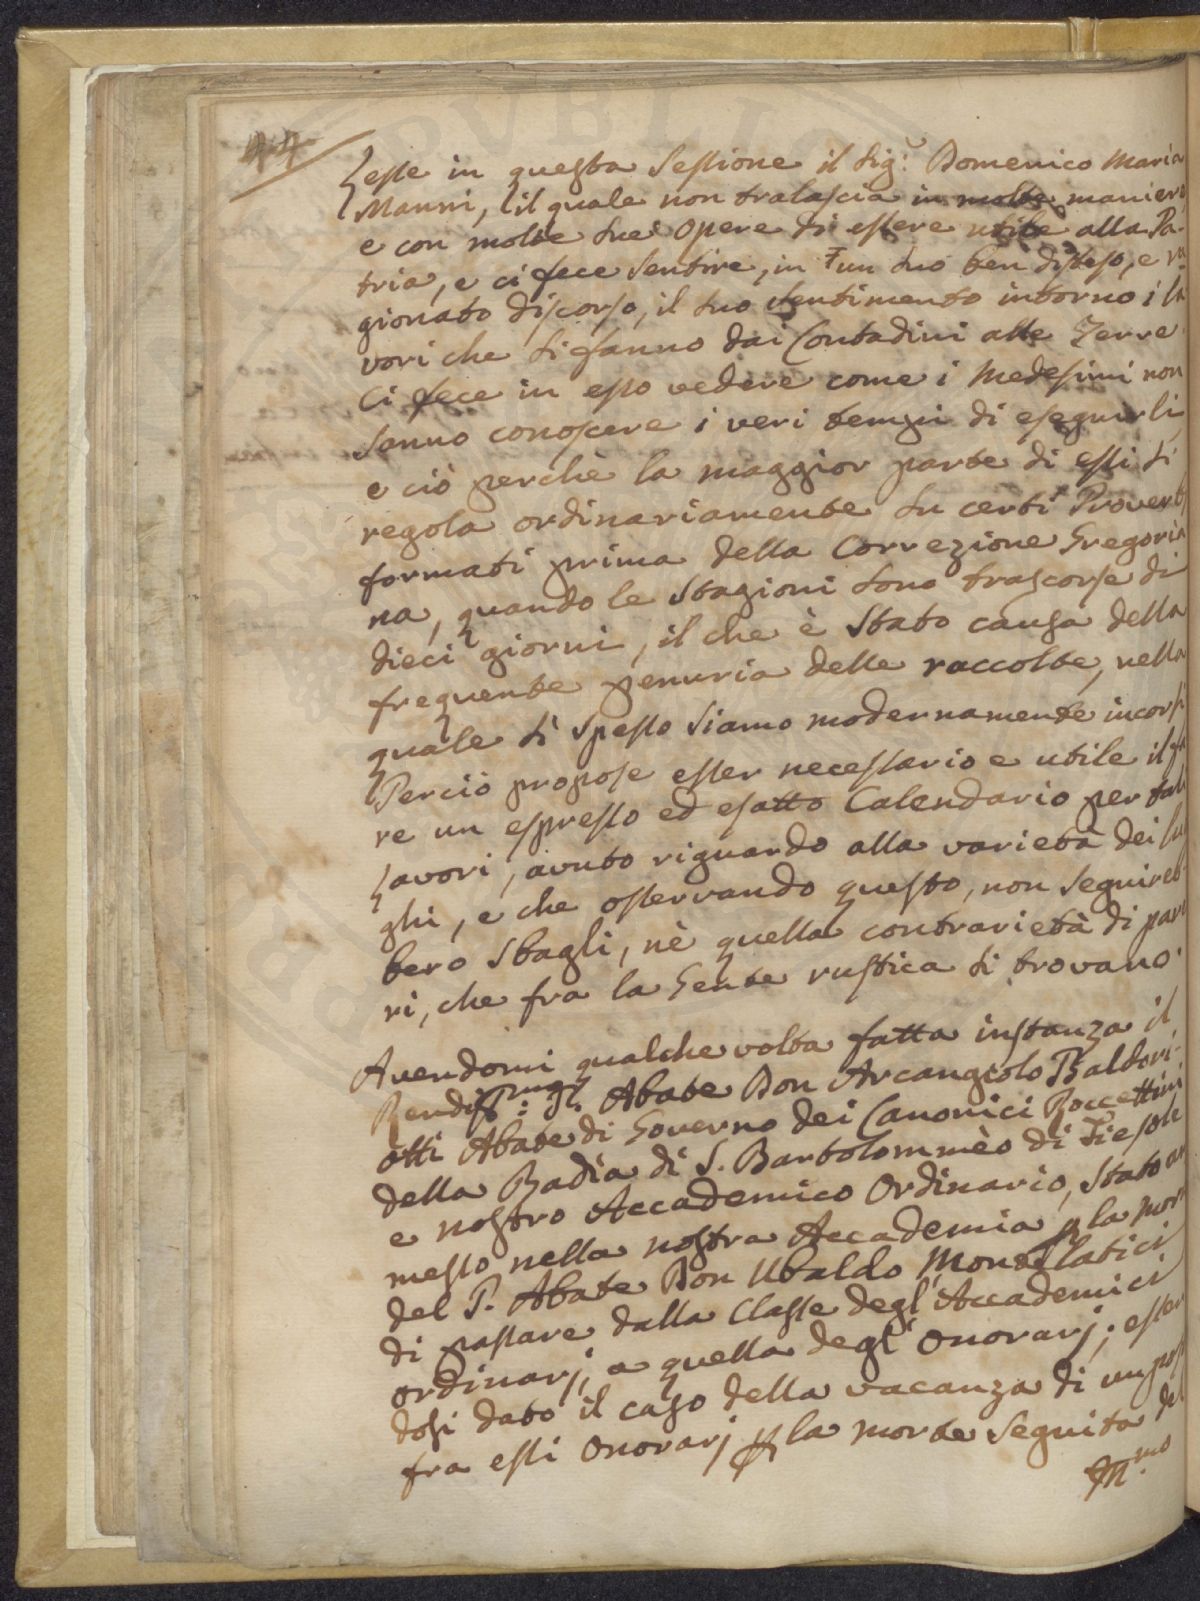 44
Lesse in questa Sessione il Sig.r Domenico Maria
Manni, il quale non tralascia in molte maniere,
e con molte sue opere di essere utile alla Pa-
tria, e ci fece sentire, in un suo ben disteso, e ra
gionato discorso, il suo sentimento intorno i la
vori che si fanno dai Contadini alle Terre
Ci fece in esso vedere come i Medesimi non
sanno conoscere i veri tempi di eseguirli
e ciò perchè la maggior parte di essi si
regola ordinariamente su certi Proverbj
formati prima della Correzione Gregoria
na, quando le Stagioni sono trascorse di
dieci giorni, il che è stato causa della
frequente penuria delle raccolte, nella
quale sì spesso siamo modernamente incorsi
Perciò propose esser necessario e utile il fa
re un espresso ed esatto Calendario per tali
Lavori, avuto riguardo alla varietà dei luo
ghi, e che osservando questo, non seguireb-
bero sbagli, nè quella contrarietà di pare
ri, che fra la Gente rustica si trovano.
Avendomi qualche volta fatta instanza il
Rendiss:mo P. Abate Don Arcangiolo Baldori-
otti Abate di Governo dei Canonici Roccettini
della Badia di S. Bartolommèo di Fiesole
e nostro Accademico Ordinario, stato am
messo nella nostra Accademia p la mor
del P. Abate Don Ubaldo Montelatici
di passare dalla Classe degl'Accademici
ordinarj, a quella degl'Onorarj; essen
dosi dato il caso della vacanza di un post
fra essi Onorarj p la morte seguita del
M:mo